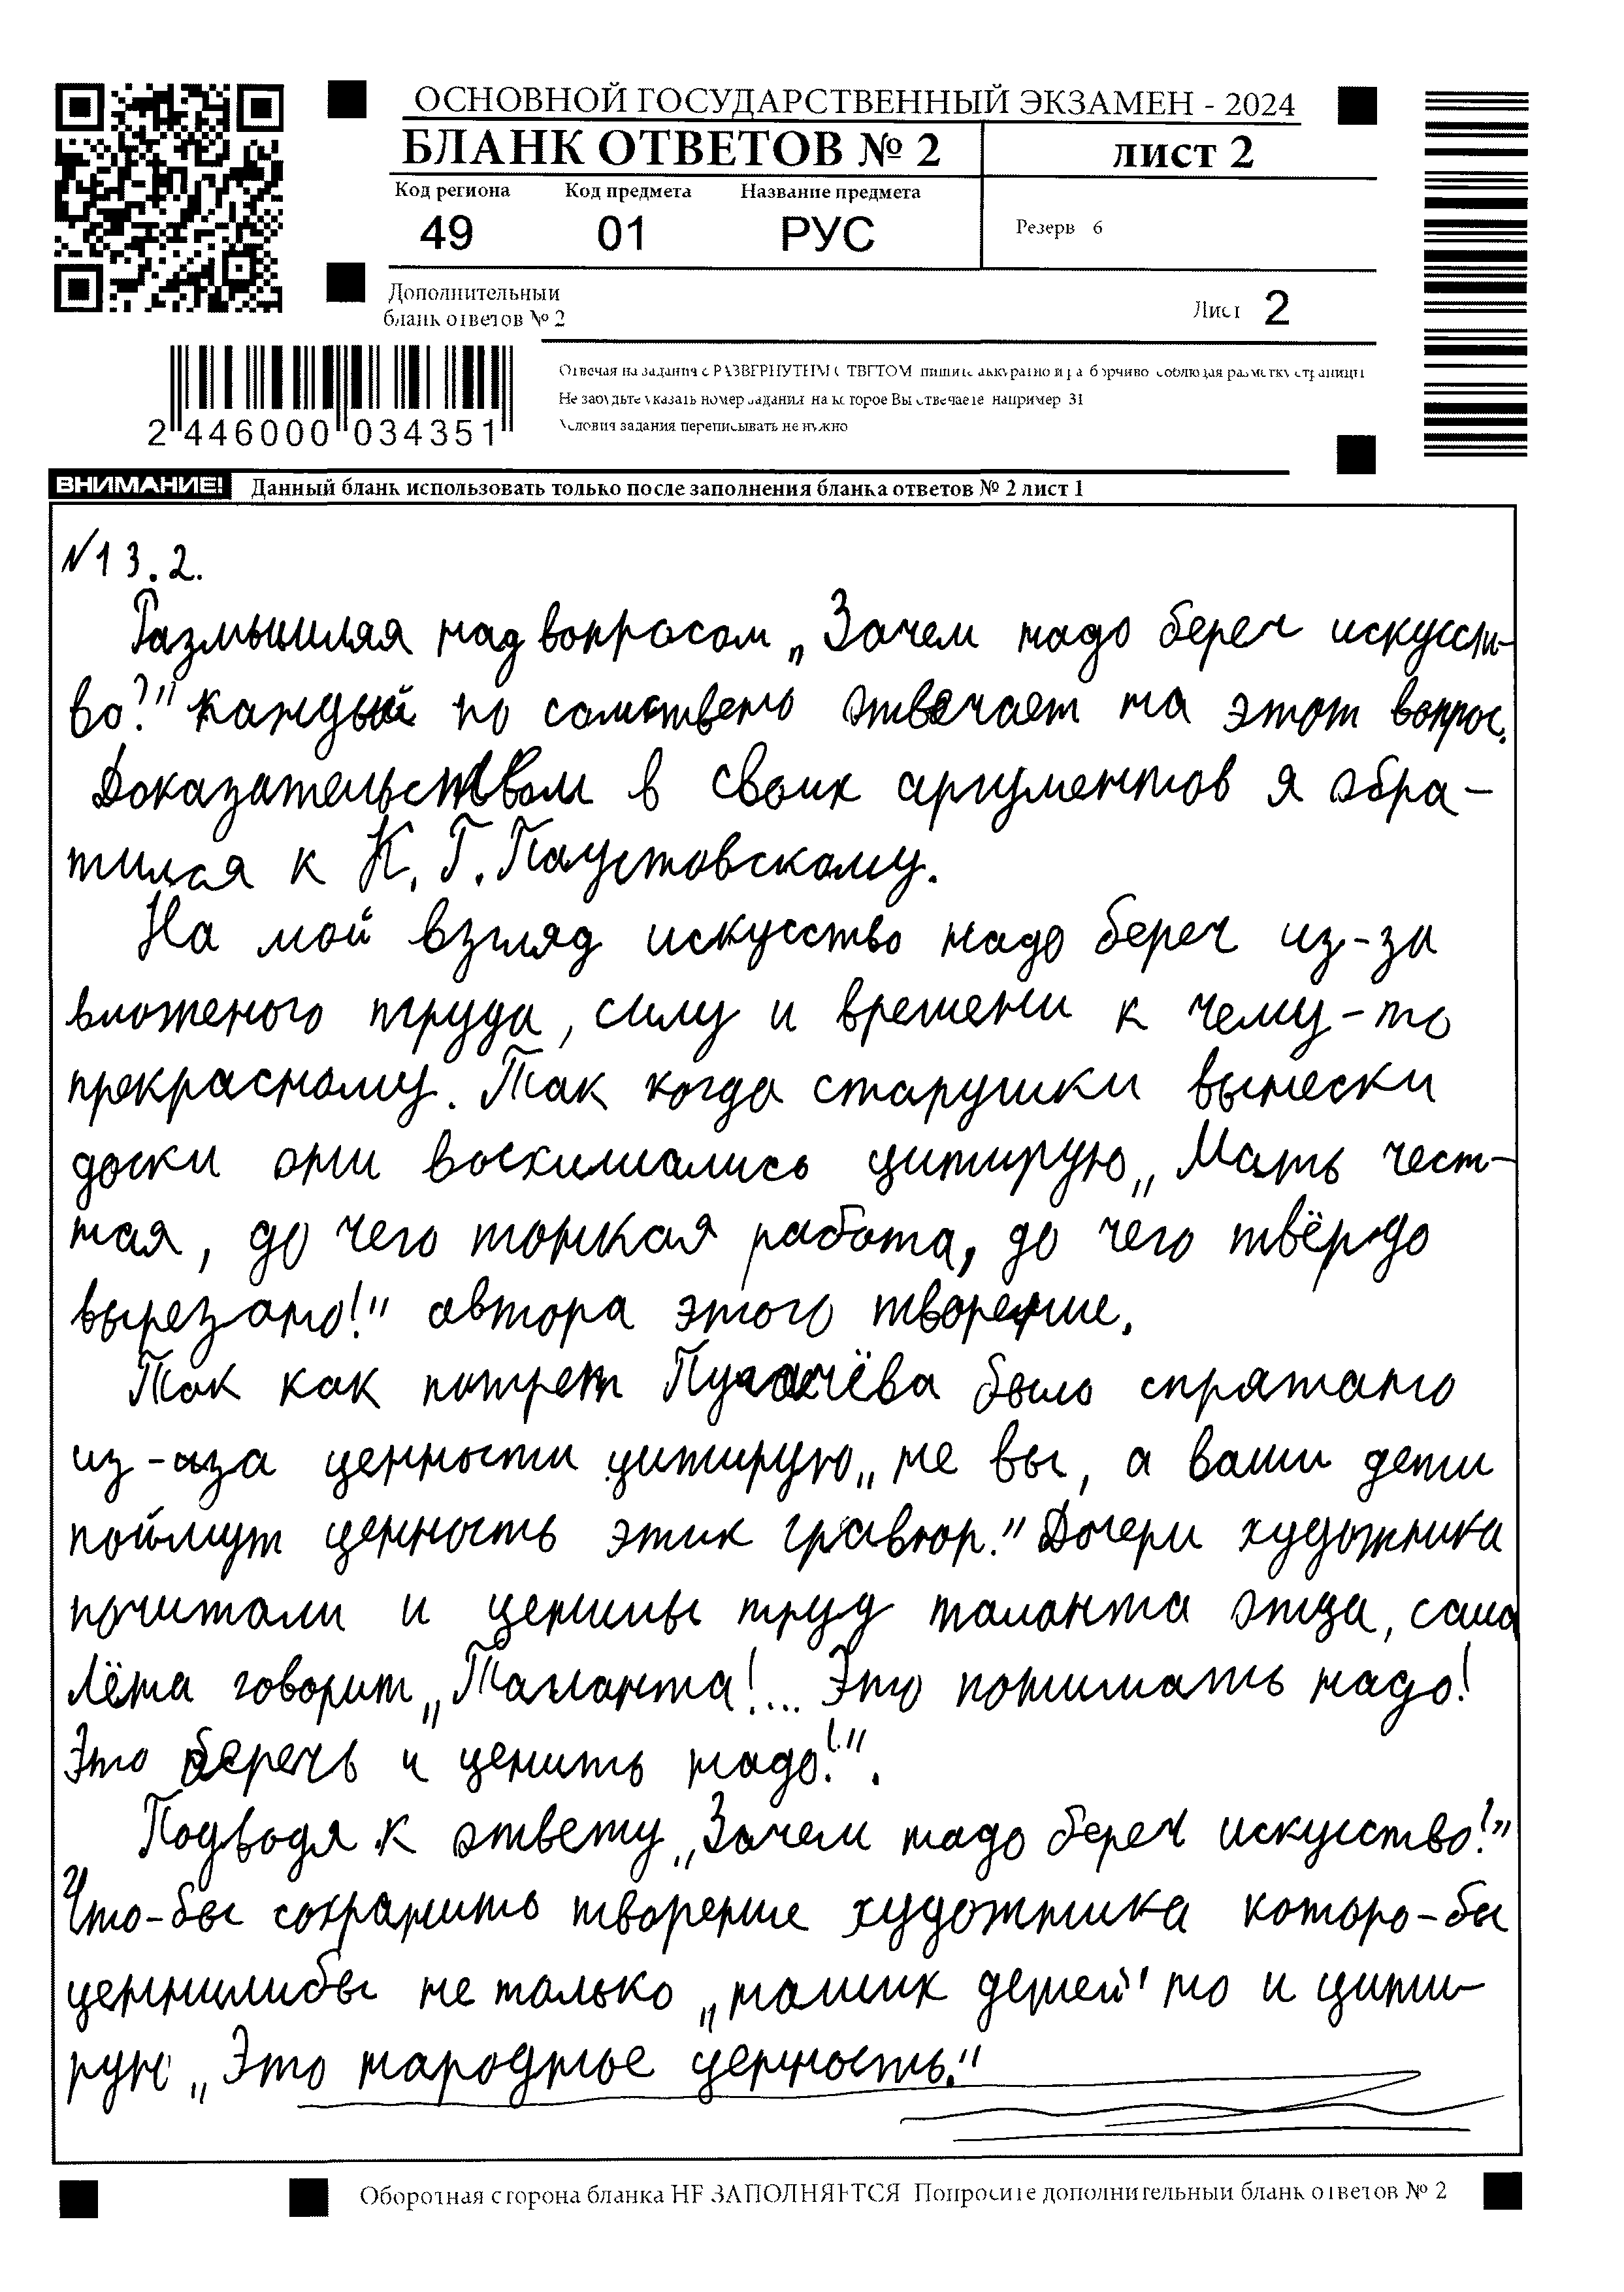 ОСНОВНОЙ ГОСУДАРСТВЕННЫЙ ЭКЗАМЕН - 2024
БЛАНК ОТВЕТОВ № 2
лист 2
Код региона Код предмета Название предмета
49 01 РУС
Резерв 6
Дополнительный
бланк ответов № 2
Лист 2
Отвечая на задания с РАЗВЕРНУТЫМ ОТВЕТОМ пишите аккуратно и разборчиво соблюдая разметку страницы
Не забудьте указать номер задания на которое Вы отвечаете например 31
Условия задания переписывать не нужно
2 446000 034351
ВНИМАНИЕ! Данный бланк использовать только после заполнения бланка ответов № 2 лист 1
№13.2.
Размышляя над вопросом „Зачем надо береч искусст-
во?" каждый по самствено отвечает на этот вопрос.
Доказательством в своих аргументов я обра-
тился к К. Г. Паустовскому.
На мой взгляд искусство надо береч из-за
вложеного труда, силу и времени к чему-то
прекрасному. Так когда старушки вынески
доски они восхищались цитирую „Мать чест-
ная, до чего тонкая работа, до чего твёрдо
вырезано!" автора этого творение.
Так как потрет Пугачёва было спрятано
из-за ценности цитирую „не вы, а ваши дети
поймут ценность этих гравюр." Дочери художника
почитали и ценилы труд таланта отца, сама
Лёна говорит „Таланта!... Это понимать надо!
Это беречь и ценить надо!".
Подводя к ответу „Зачем надо береч искусство!"
Что-бы сохранить творение художника которо-бы
ценнилибы не только „наших детей" но и цити-
рую „Это народное ценность."
Оборотная сторона бланка НЕ ЗАПОЛНЯЕТСЯ Попросите дополнительный бланк ответов № 2